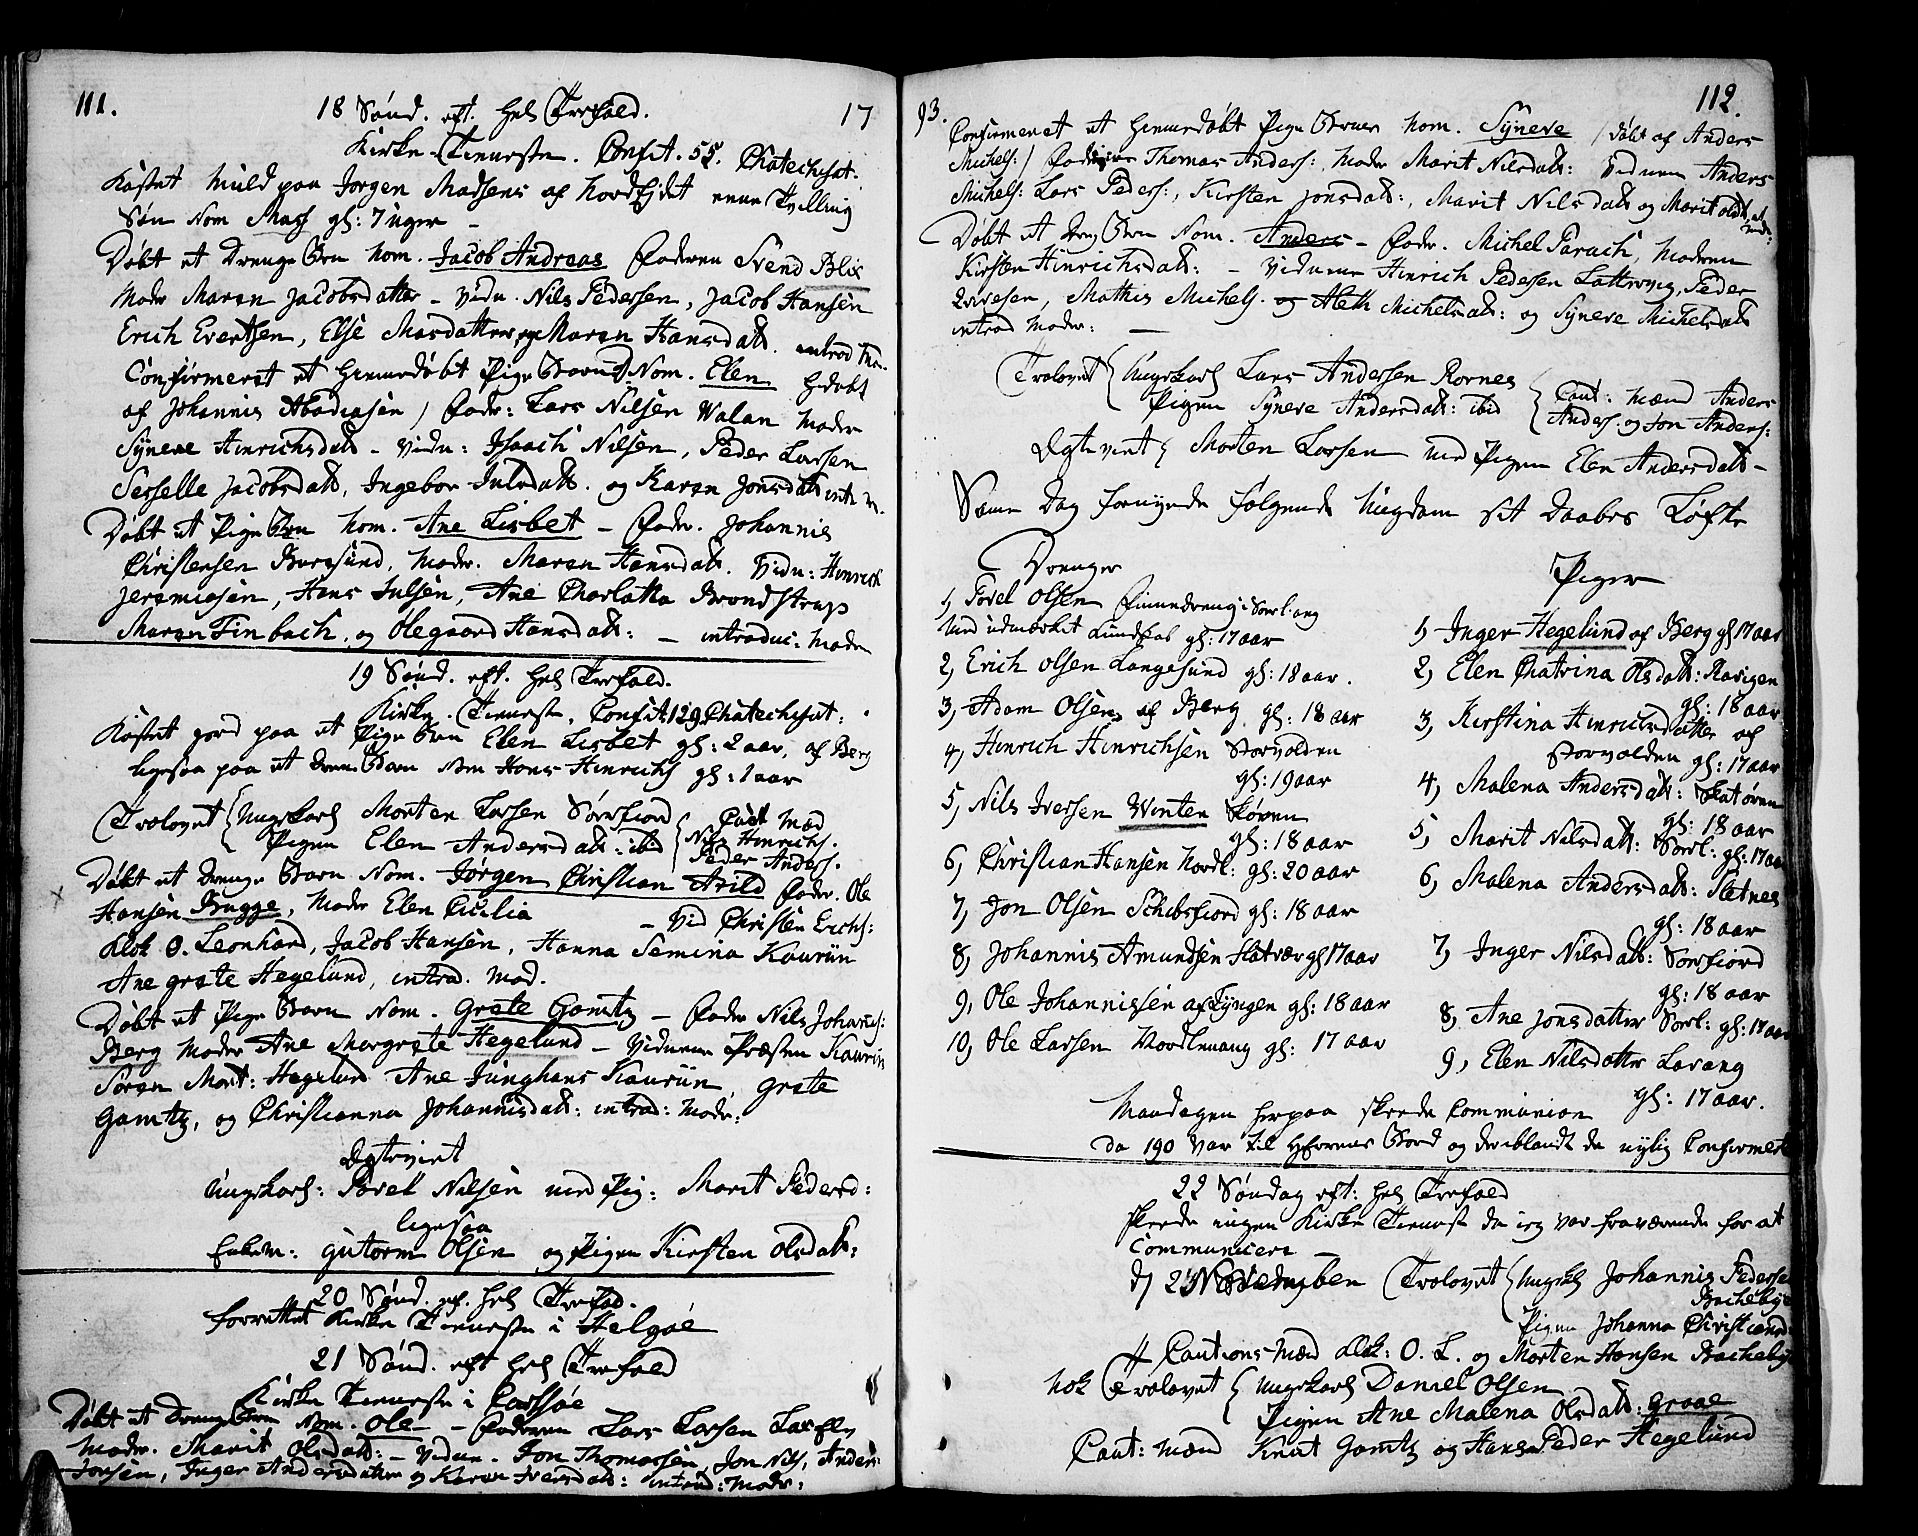 111. 18 Sønd. eft. hel Trefold. 17
Kirke-Tieneste. Confit. 55. Chatechisat:
Kastet Muld paa Jørgen Madsens af Nordfjdet eene Tvilling
Søn Nom Mass gl: 7 uger –
Døbt et Drenge Brn Nom. Jacob Andreas Faderen Svend Blix
Moder Maren Jacobsdatter – Vidn. Nils Pedersen, Jacob Hansen
Erich Evertsen, Else Masdatter og Maren Hansdatt. introd Mo.
Confirmeret et hiemedøbt Pige Barn Nom. Elen hdøbt
af Johannis Abadiasen / Fadr: Lars Nilsen Walan Moder
Syneve Hinrichsdatt – Vidn: Isaach Nilsen, Peder Larsen
Sesselle Jacobsdatt, Ingebor Julsdatt. og Karen Jonsdatt intr m.
Døbt et Pige Brn Nom. Ane Lisbet – Fadr. Johannis
Christensen Buresund, Moder. Maren Hansdatt. Vidn: Hinrich
Jeremiasen, Hans Julsen, Ane Charlotta Brondstrup
Maren Finbach, og Olegaard Hansdatt: – introduc: Moder
19 Sønd. eft. hel Trefold.
Kirke-Tieneste, Confit: 129 Chatechisat:
Kastet Jord paa et Pige Brn Elen Lisbet gl: 2 aar, af Berg
ligesaa paa et Drenge Barn Nom Hans Hinrichs gl: 1 aar
Trolovet { Ungekarl Morten Larsen Sørfiord { Caut Mæd
Pigen Elen Andersdatt: ibid Nils Hinrichs.
Peder Anders.
Døbt et Drenge Barn Nom. Jørgen Christian Arild Fadr. Ole
Hansen Brugge, Moder Elen Cicilia – Vid Christen Erichs:
Klok O. Leonhard, Jacob Hansen, Hanna Semina Kaurin
Ane Grete Hegelund, introd. Mod.
Døbt et Pige Barn Nom. Grete Gamtz – Fader Nils Johanes:
Berg Moder Ane Margrete Hegelund – Vidnerne Præsten Kaurin
Søren Mort: Hegelund Ane Junghans Kaurin, Grete
Gamtz, og Christianna Johannisdatt: introd: Modr:
Egteviet
Ungekarl: Povel Nilsen med Pig: Marit Pedersd:
ligesaa
Enkem: Gutorm Olsen og Pigen Kirsten Olsdatt:
20 Sønd. ef. hel Trefod.
forrettet Kirke Tieneste i Helgøe
21 Sønd. eft hel Trefold
Kirke Tieneste i Carlsøe
Døbt et Drenge Brn Nom. Ole – Faderen Lars Larsen
Moder. Marit Olsdatt: – Vidn. Jon Thomassen, Jon Nils, Anders
Jonsen, Inger Andersdatter og Karen Iversdatt: introd: Modr:
93. 112.
Confirmeret et hiemedøbt Pige Barn Nom. Syneve / døbt af Anders
Michels: / Faderen Thomas Anders: Moder Marit Nilsdatt: Vidnerne Anders
Michels: Lars Peders:, Kirsten Jonsdatt:, Marit Nilsdatt og Marit Olsdatt
Døbt et Dreng Brn Nom. Anders – Fadr. Michel Parach, Moderen
Kirsten Hinrichsdatt: – Vidnerne Hinrich Pedersen Lattervig, Peder
Iversen, Mathis Michels. og Aleth Michelsdatt: og Syneve Michelsdatt
introd Moder: –
Trolovet { Ungekarl Lars Andersen Rornes { Caut: Mænd Anders
Pigen Syneve Andersdatt: ibid Anders. og Jon Anders:
Egteviet { Morten Larsen med Pigen Elen Andersdatt –
Samme Dag fornyede følgende Ungdom sit Daabes Løfte
Drenger
1, Povel Olsen Finnedreng i Sørl.ang
med udmærket Kundskab gl: 17 aar
2, Erich Olsen Langesund gl: 18 aar.
3, Adam Olsen af Berg gl: 18 aar
4, Hinrich Hinrichsen Storvolden
gl: 19 aar
5, Nils Iversen Winten Skøven
gl: 18 aar
6, Christian Hansen Nordl: gl: 20 aar
7, Jon Olsen Schibsfiord gl: 18 aar
8, Johannis Amundsen Slatvær gl 17 aar
9, Ole Johannissen af Lyngen gl: 18 aar
10, Ole Larsen Nordlenang gl: 17 aar
Piger
1, Inger Hegelund af Berg gl 17 aar
2, Elen Chatrina Olsdatt: Ravigen
gl: 18 aar
3, Kirstina Hinrichsdatter af
Storvolden gl: 17 aar
4, Malena Andersdatt: Skatøren
gl: 18 aar
5, Marit Nilsdatt: Sørl: gl: 17 aar
6, Malena Andersdatt: Sletnes
gl: 18 aar
7, Inger Nilsdatt: Sørfiord
gl: 18 aar
8, Ane Jonsdatter Sørl: gl: 17 aar
9, Elen Nilsdatter Lavang
gl: 17 aar.
Mandagen herpaa skeede Communion
da 190 var til Herrens Bord og deriblandt de nylig Confirmert
22 Søndag eft: hel Trefold
skeede ingen Kirke Tieneste da ieg var fraværende for at
Communicere –
d 2 Novemben Trolovet { Ungkl Johannis Pedersen
Bachebye
Pigen Johanna Christiand
Cautions Mænd Klok: O. L. og Morten Hansen Bachebye
Nok Trolovet { Ungekarl Daniel Olsen
Pigen Ane Malena Olsdatt: Graae
Caut: Mænd Knut Gamtz og Hans Peder Hegelund